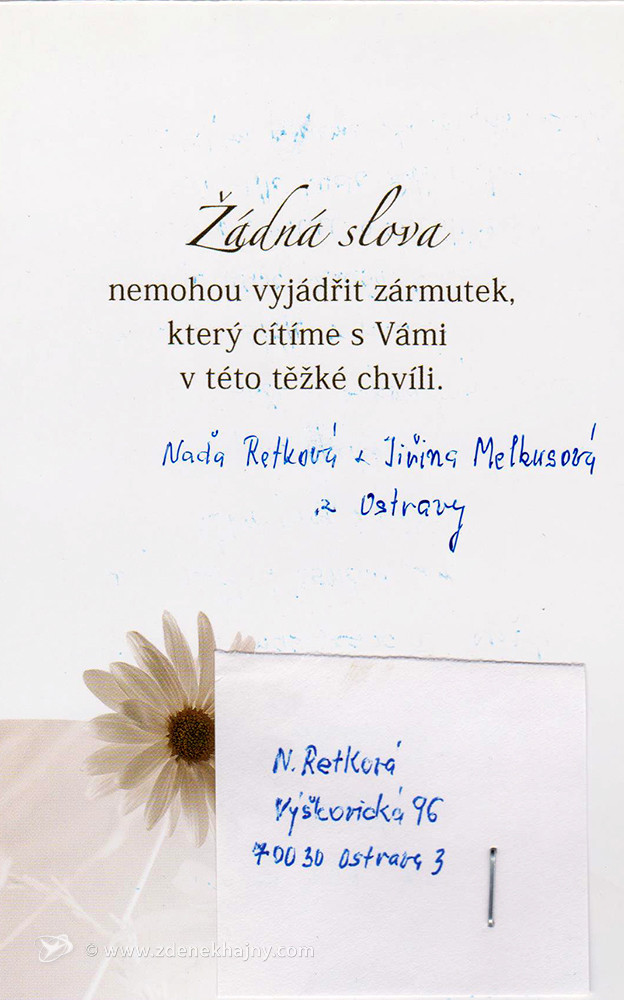 Žádná slova
nemohou vyjádřit zármutek,
který cítíme s Vámi
v této těžké chvíli.
Naďa Retková + Jiřina Melkusová
z Ostravy
N. Retková
Výškovická 96
70030 Ostrava 3
© www.zdenekhajny.com